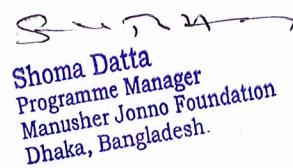 Shoma Datta
Programme Manager
Manusher Jonno Foundation
Dhaka, Bangladesh.